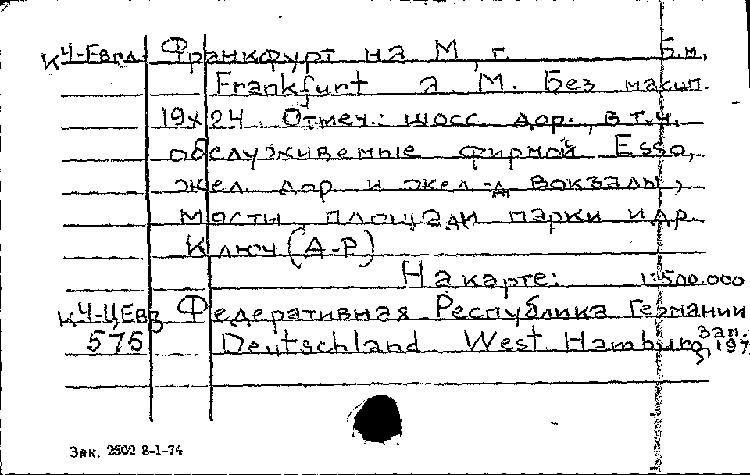 К Ч-Евгл Франкфурт на М, г. Б.м,
Frankfurt a M. Без масшт.
19х24. Отмеч.: шосс. дор., в т.ч.
обслуживаемые фирмой Esso,
жел. дор. и жел-д. вокзалы,
мосты, площади парки и др.
Ключ (А-Р)
На карте: 1:500.000
К Ч-ЦЕвз Федеративная Республика Германии зап.
575 Deutschland West Hamburg, 197
Зак. 2502 8-1-74